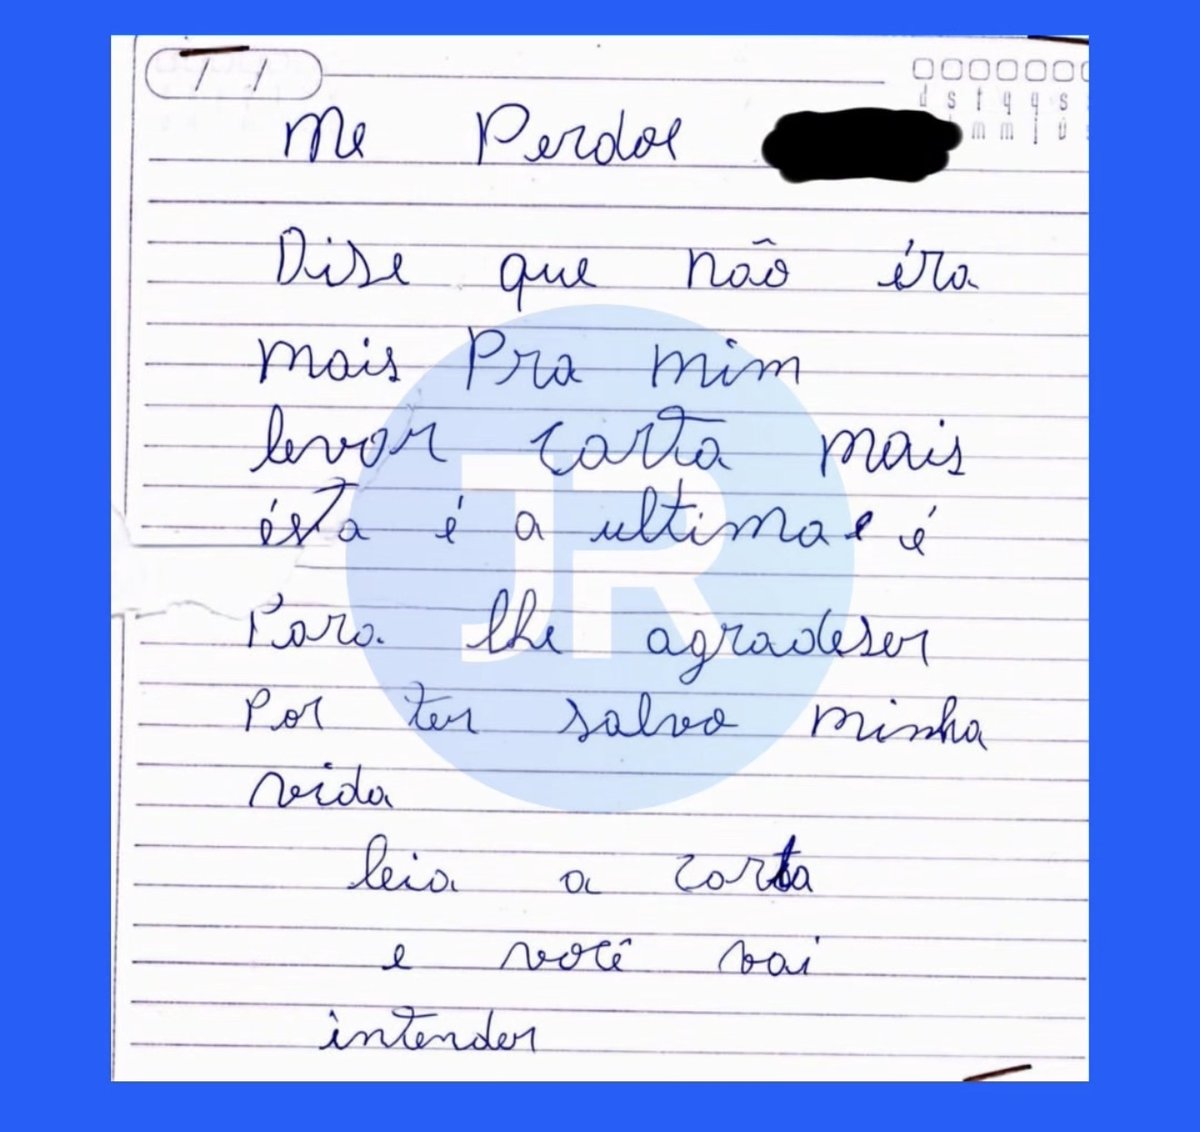 / /
d s t q q s
m m j ú
Me Perdoe
Dise que não éra
mais Pra mim
levar carta mais
ésta é a ultima e é
Para lhe agradeser
Por ter salvo minha
vida
leia a carta
e você vai
intender
JR